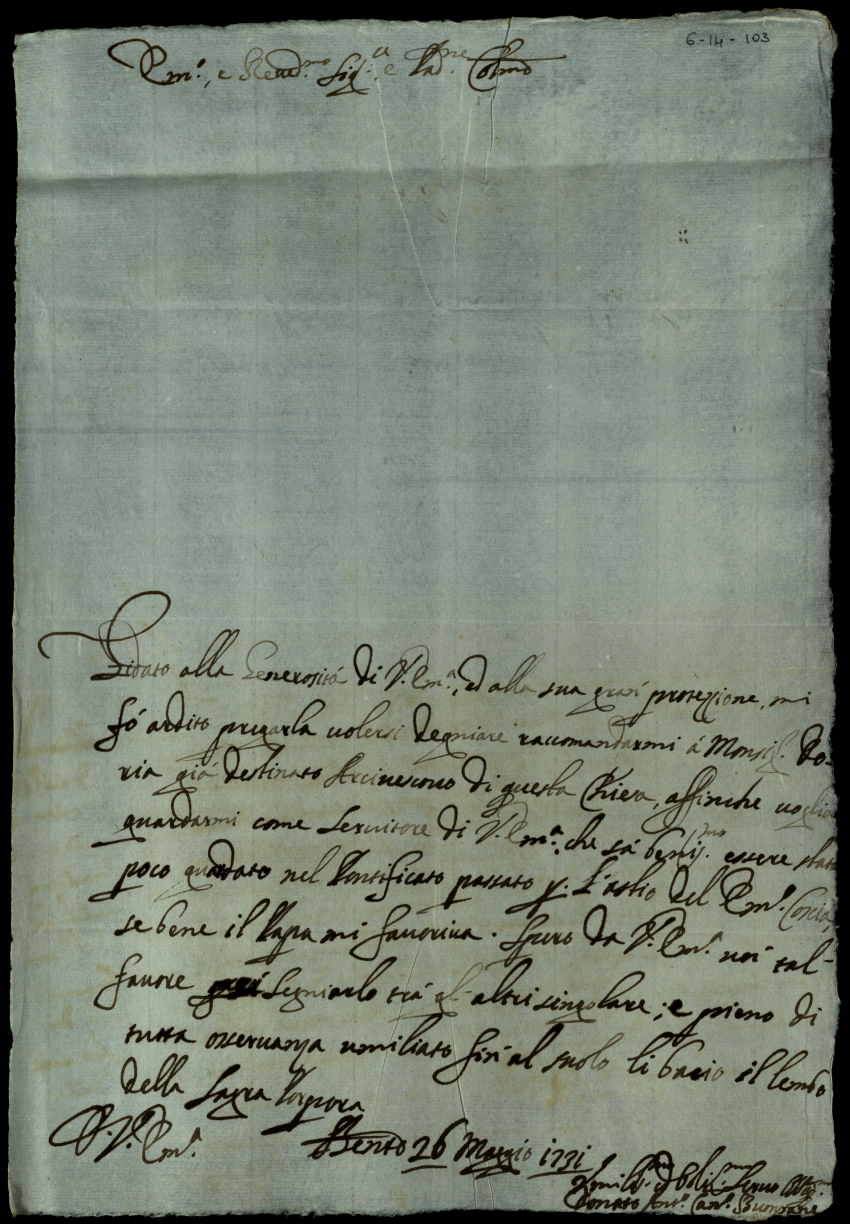 6-14-103
Em.º, e Reued.mo Sig.re, e Pad.ne Colmo
Fidato alla Generosità di V. Em.ª, ed alla sua gran protezione, mi
fó ardito pregarla uolersi degniare raccomandarmi á Monsig.r Do-
ria giá destinato Arciuescouo di questa Chiesa, affinche uoglia
guardarmi come seruitore di V. Em.ª, che sá benis.mo essere stato
poco guardato nel Pontificato passato p. l'astio del Em.º Coscia,
se bene il Papa mi fauoriua. Spero da V. Em.ª un tal-
fauore segniarlo trá gl'altri singolare; e pieno di
tutta osseruanza umiliato fin al suolo li bacio il lembo
della Sagra Porpora
D. V. Em.ª Beneto 26 Maggio 1731
Umilis.mo ed Oblig.mo Seruo
Donato Ant.º Can.º